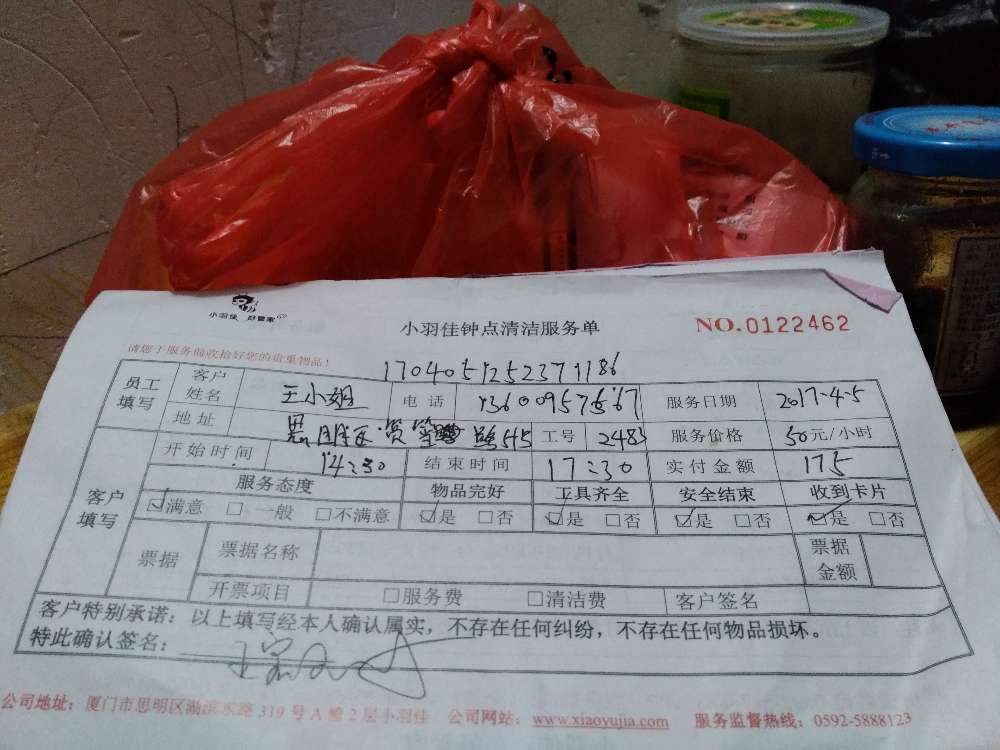 小羽佳 好管家
小羽佳钟点清洁服务单 NO.0122462
请您于服务前收拾好您的贵重物品!
1704051252371186
员工填写 客户姓名 王小姐 电话 13600957667 服务日期 2017-4-5
地址 思明区 路 工号 2483 服务价格 50元/小时
开始时间 14:30 结束时间 17:30 实付金额 175
客户填写 服务态度 物品完好 工具齐全 安全结束 收到卡片
☑满意 □一般 □不满意 ☑是 □否 ☑是 □否 ☑是 □否 ☑是 □否
票据 票据名称 票据金额
开票项目 □服务费 □清洁费 客户签名
客户特别承诺：以上填写经本人确认属实，不存在任何纠纷，不存在任何物品损坏。
特此确认签名：
公司地址：厦门市思明区湖滨东路 319 号 A 幢 2 层小羽佳 公司网站：www.xiaoyujia.com 服务监督热线：0592-5888123